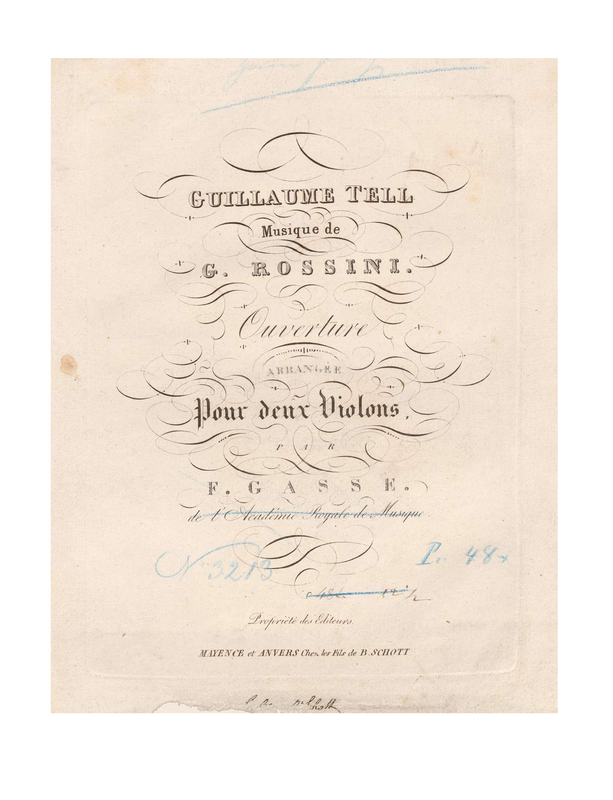 GUILLAUME TELL
Musique de
G. ROSSINI.
Ouverture
ARRANGÉE
Pour deux Violons,
PAR
F. GASSE.
de l'Académie Royale de Musique
No 3213
Pr. 48x
Propriété des Editeurs.
MAYENCE et ANVERS Chez les Fils de B. SCHOTT